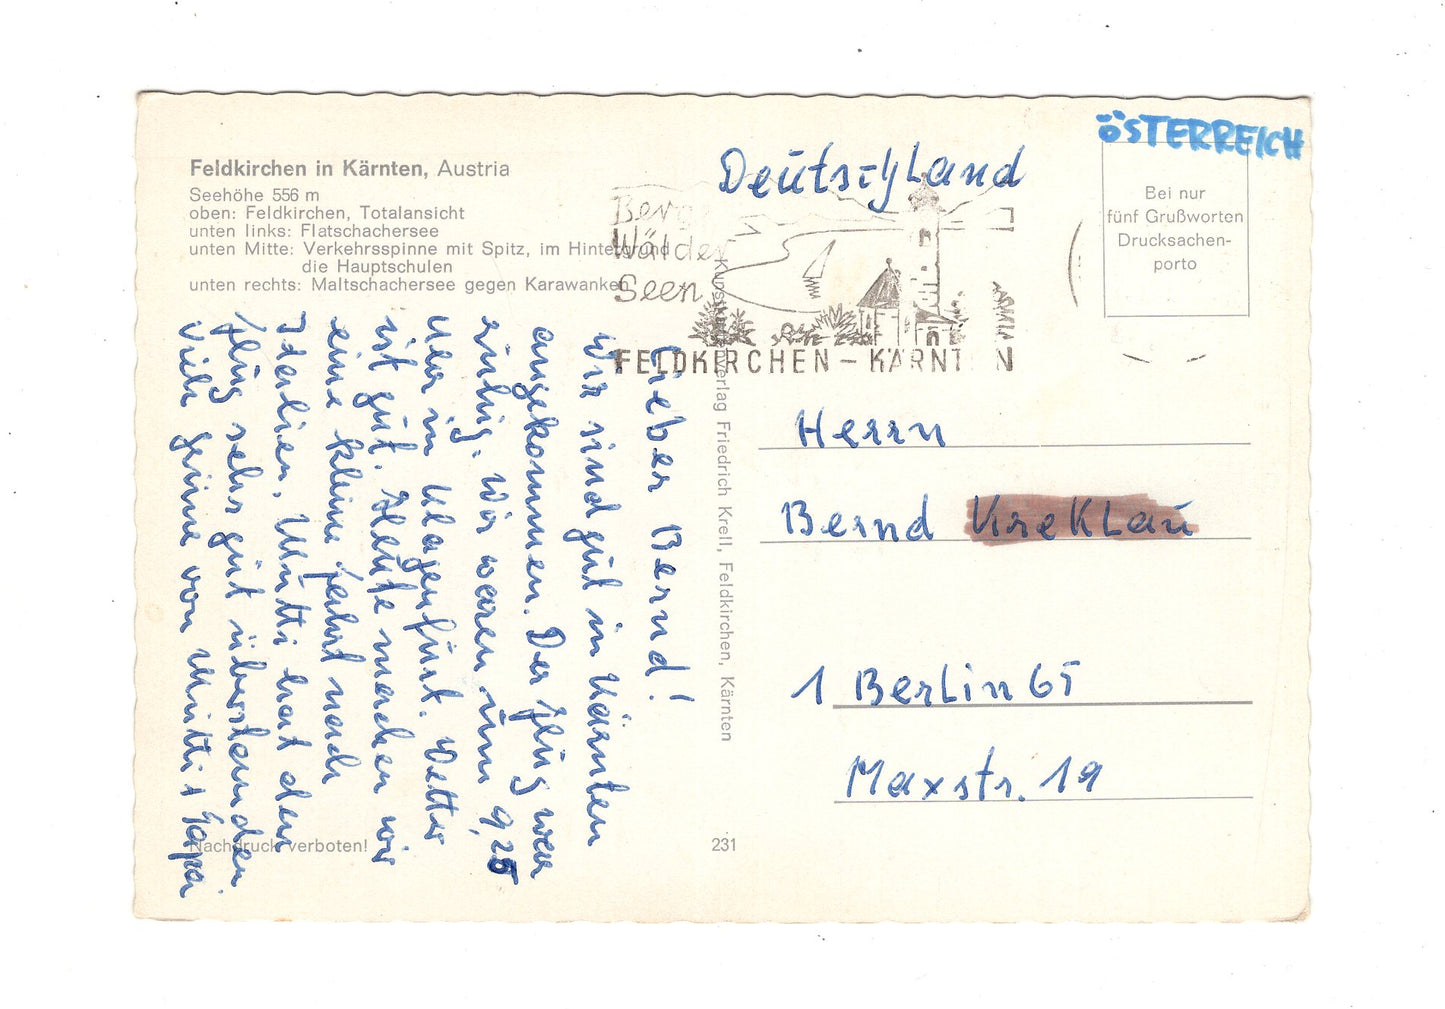 ÖSTERREICH
Feldkirchen in Kärnten, Austria
Seehöhe 556 m
oben: Feldkirchen, Totalansicht
unten links: Flatschachersee
unten Mitte: Verkehrsspinne mit Spitz, im Hintergrund
die Hauptschulen
unten rechts: Maltschachersee gegen Karawanken
Deutschland
Berge
Wälder
Seen
FELDKIRCHEN – KÄRNTEN
Bei nur
fünf Grußworten
Drucksachen-
porto
Lieber Bernd!
Wir sind gut in Kärnten
angekommen. Der Flug war
ruhig. Wir waren um 9,25
Uhr in Klagenfurt. Wetter
ist gut. Heute machen wir
eine kleine Fahrt nach
Italien. Mutti hat den
Flug sehr gut überstanden
Viele Grüße von Mutti + Papa
Kunstkartenverlag Friedrich Krell, Feldkirchen, Kärnten
Herrn
Bernd Kreklau
1 Berlin 65
Maxstr. 19
Nachdruck verboten!
231